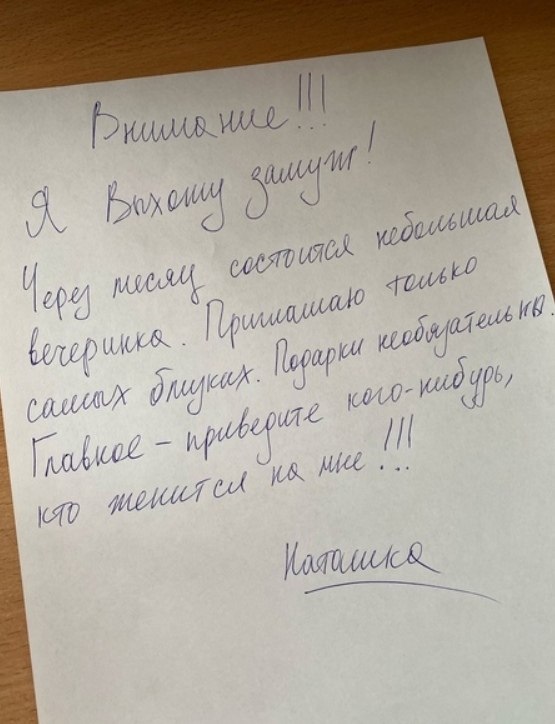 Внимание!!!
Я Выхожу замуж!
Через месяц состоится небольшая
вечеринка. Приглашаю только
самых близких. Подарки необязательны.
Главное – приведите кого-нибудь,
кто женится на мне!!!
Наташка